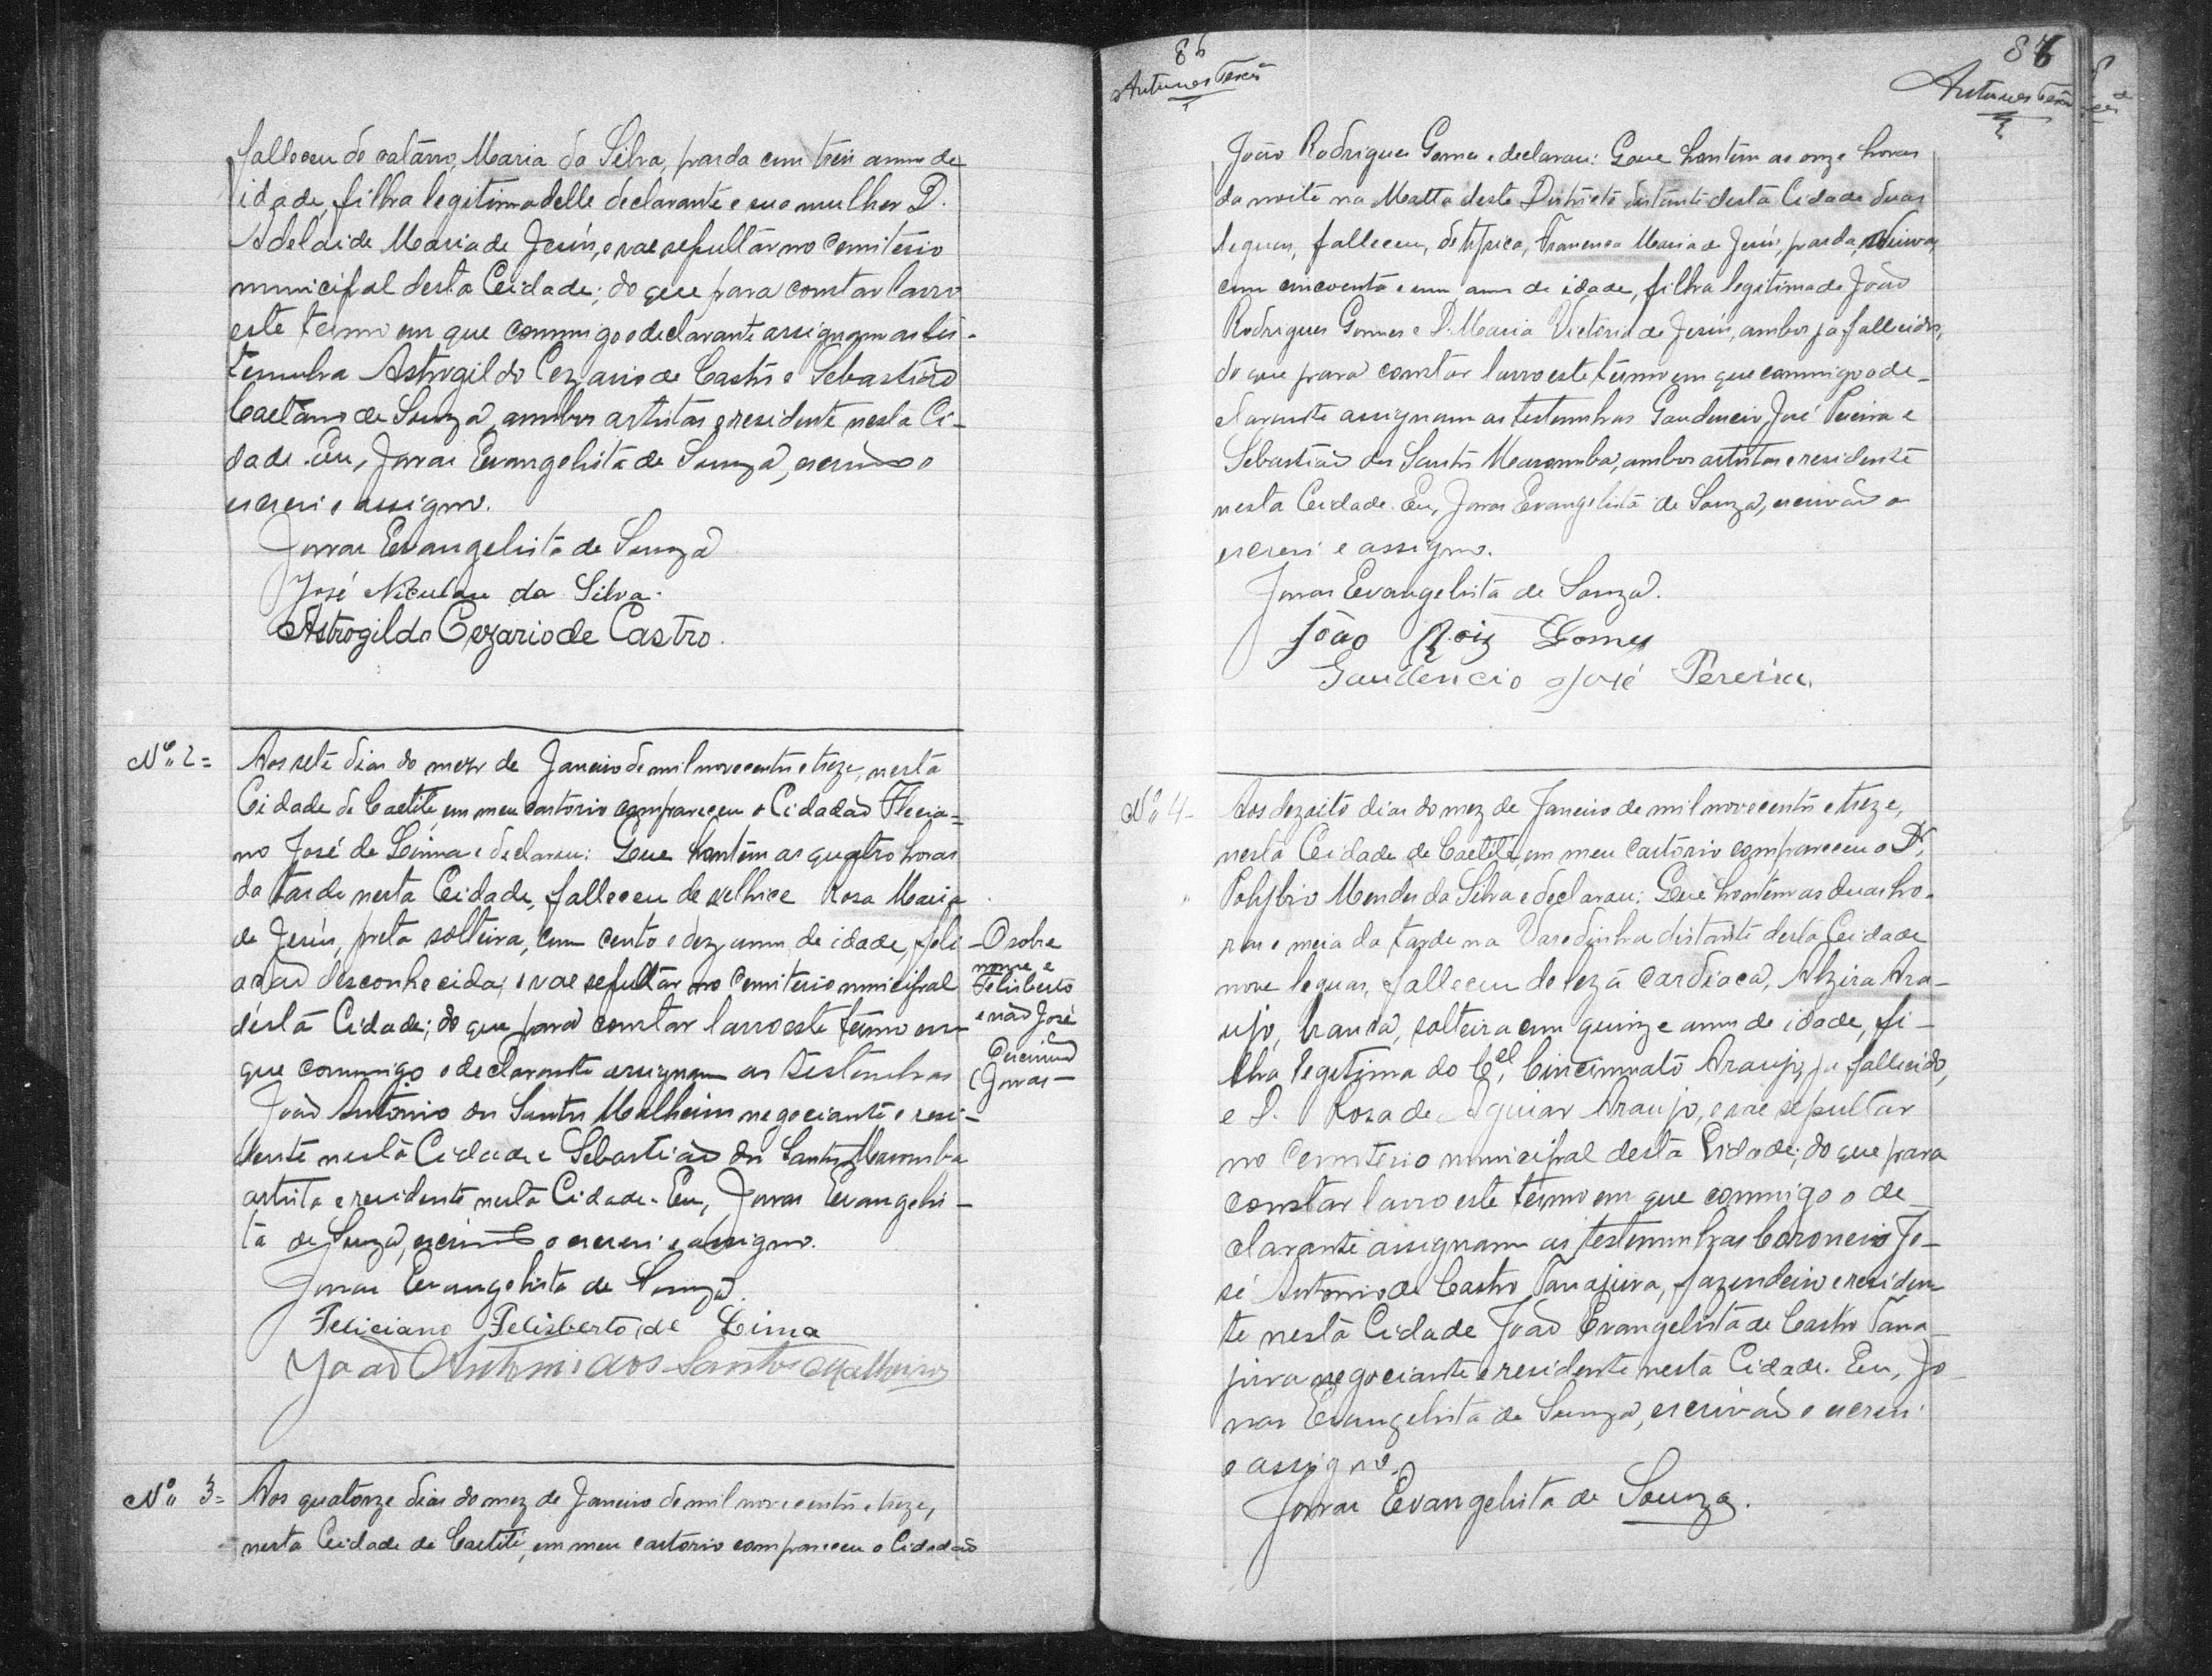 falleceu de catarro, Maria da Silva, parda com treis annos de
idade, filha legitima delle declarante e sua mulher D.
Adelaide Maria de Jesús, e vae sepultar no Cemiterio
municipal desta Ceidade; do que para constar lavro
este termo em que commigo o declarante assignam as tes-
temunha Astrogildo Cezario de Castro e Sebastião
Caetano de Souza, ambos artistas e residente nesta Ci-
dade. Eu, Jonas Evangelista de Souza, escrivão o
escrevi e assigno.
Jonas Evangelista de Souza
José Niculau da Silva.
Astrogildo Cezario de Castro.
Nº 2=
Aos sete dias do mez de Janeiro de mil novecentos e treze, nesta
Cidade de Caetité, em meu cartorio compareceu o Cidadão Flecia=
no José de Lima e declarou: Que hontem as quatro horas
da tarde nesta Ceidade, falleceu de velhice Rosa Maria
de Jesús, preta solteira, com cento e dez annos de idade, fili
ação desconhecida; e vae sepultar no Cemiterio municipal
désta Cidade; do que para constar lavro este termo em
que commigo o declarante assignam as testemunhas
João Antonio dos Santos Malheiros negociante e resi-
dente nesta Cidade e Sebastião dos Santos
artista e residente nesta Cidade. Eu, Jonas Evangelis-
ta de Souza, escrivão o escrevi e assigno.
Jonas Evangelista de Souza.
Feliciano Felisberto de Lima
João Antonio dos Santos Malheiros
- O sobre
nome e
Felisberto
e não José
O escrivão
Jonas -
Nº 3=
Aos quatorze dias do mez de Janeiro de mil novecentos e treze,
nesta Ceidade de Caetité, em meu cartorio compareceu o Cidadão
86
Antunes
87
Antunes
João Rodrigues Gomes e declarou: Que hontem as onze horas
da noite na Matta deste Districto distante desta Cidade duas
leguas, falleceu, de tisica, Francisca Maria de Jesús, parda, viuva,
com cincoenta e um annos de idade, filha legitima de João
Rodrigues Gomes e D. Maria Victoria de Jesús, ambos ja fallecidos,
do que para constar lavro este termo em que commigo o de-
clarante assignam as testemunhas Gaudencio José Pereira e
Sebastião dos Santos, ambos artistas e residente
nesta Ceidade. Eu, Jonas Evangelista de Souza, escrivão o
escrevi e assigno.
Jonas Evangelista de Souza.
João Roiz Gomes
Gaudencio José Pereira.
Nº 4-
Aos dezoito dias do mez de Janeiro de mil novecentos e treze,
nesta Ceidade de Caetité, em meu cartorio compareceu o Dr.
Polybio Mendes da Silva e declarou: Que hontem as duas ho-
ras e meia da tarde na Varedinha distante desta Ceidade
nove leguas, falleceu de lezã cardiaca, Alzira Ara-
ujo, branca, solteira com quinze annos de idade, fi-
lha legitima do Cel. Cincinnato Araujo, ja fallecido,
e D. Rosa de Aguiar Araujo, e vae sepultar
no Cemiterio municipal desta Cidade; do que para
constar lavro este termo em que commigo o de-
clarante assignam as testemunhas Coroneis Jo-
sé Antonio de Castro Tanajura, fazendeiro e residen
te nesta Cidade João Evangelista de Castro Tana-
jura negociante e residente nesta Cidade. Eu, Jo-
nas Evangelista de Souza, escrivão o escrevi
e assigno.
Jonas Evangelista de Souza.